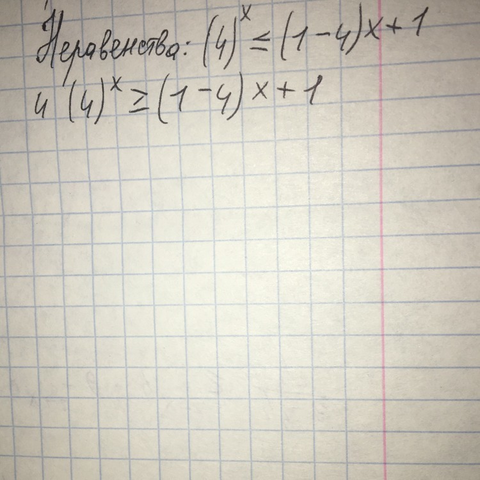 Неравенства: (4)^x ≤ (1-4)x+1
и (4)^x ≥ (1-4)x+1